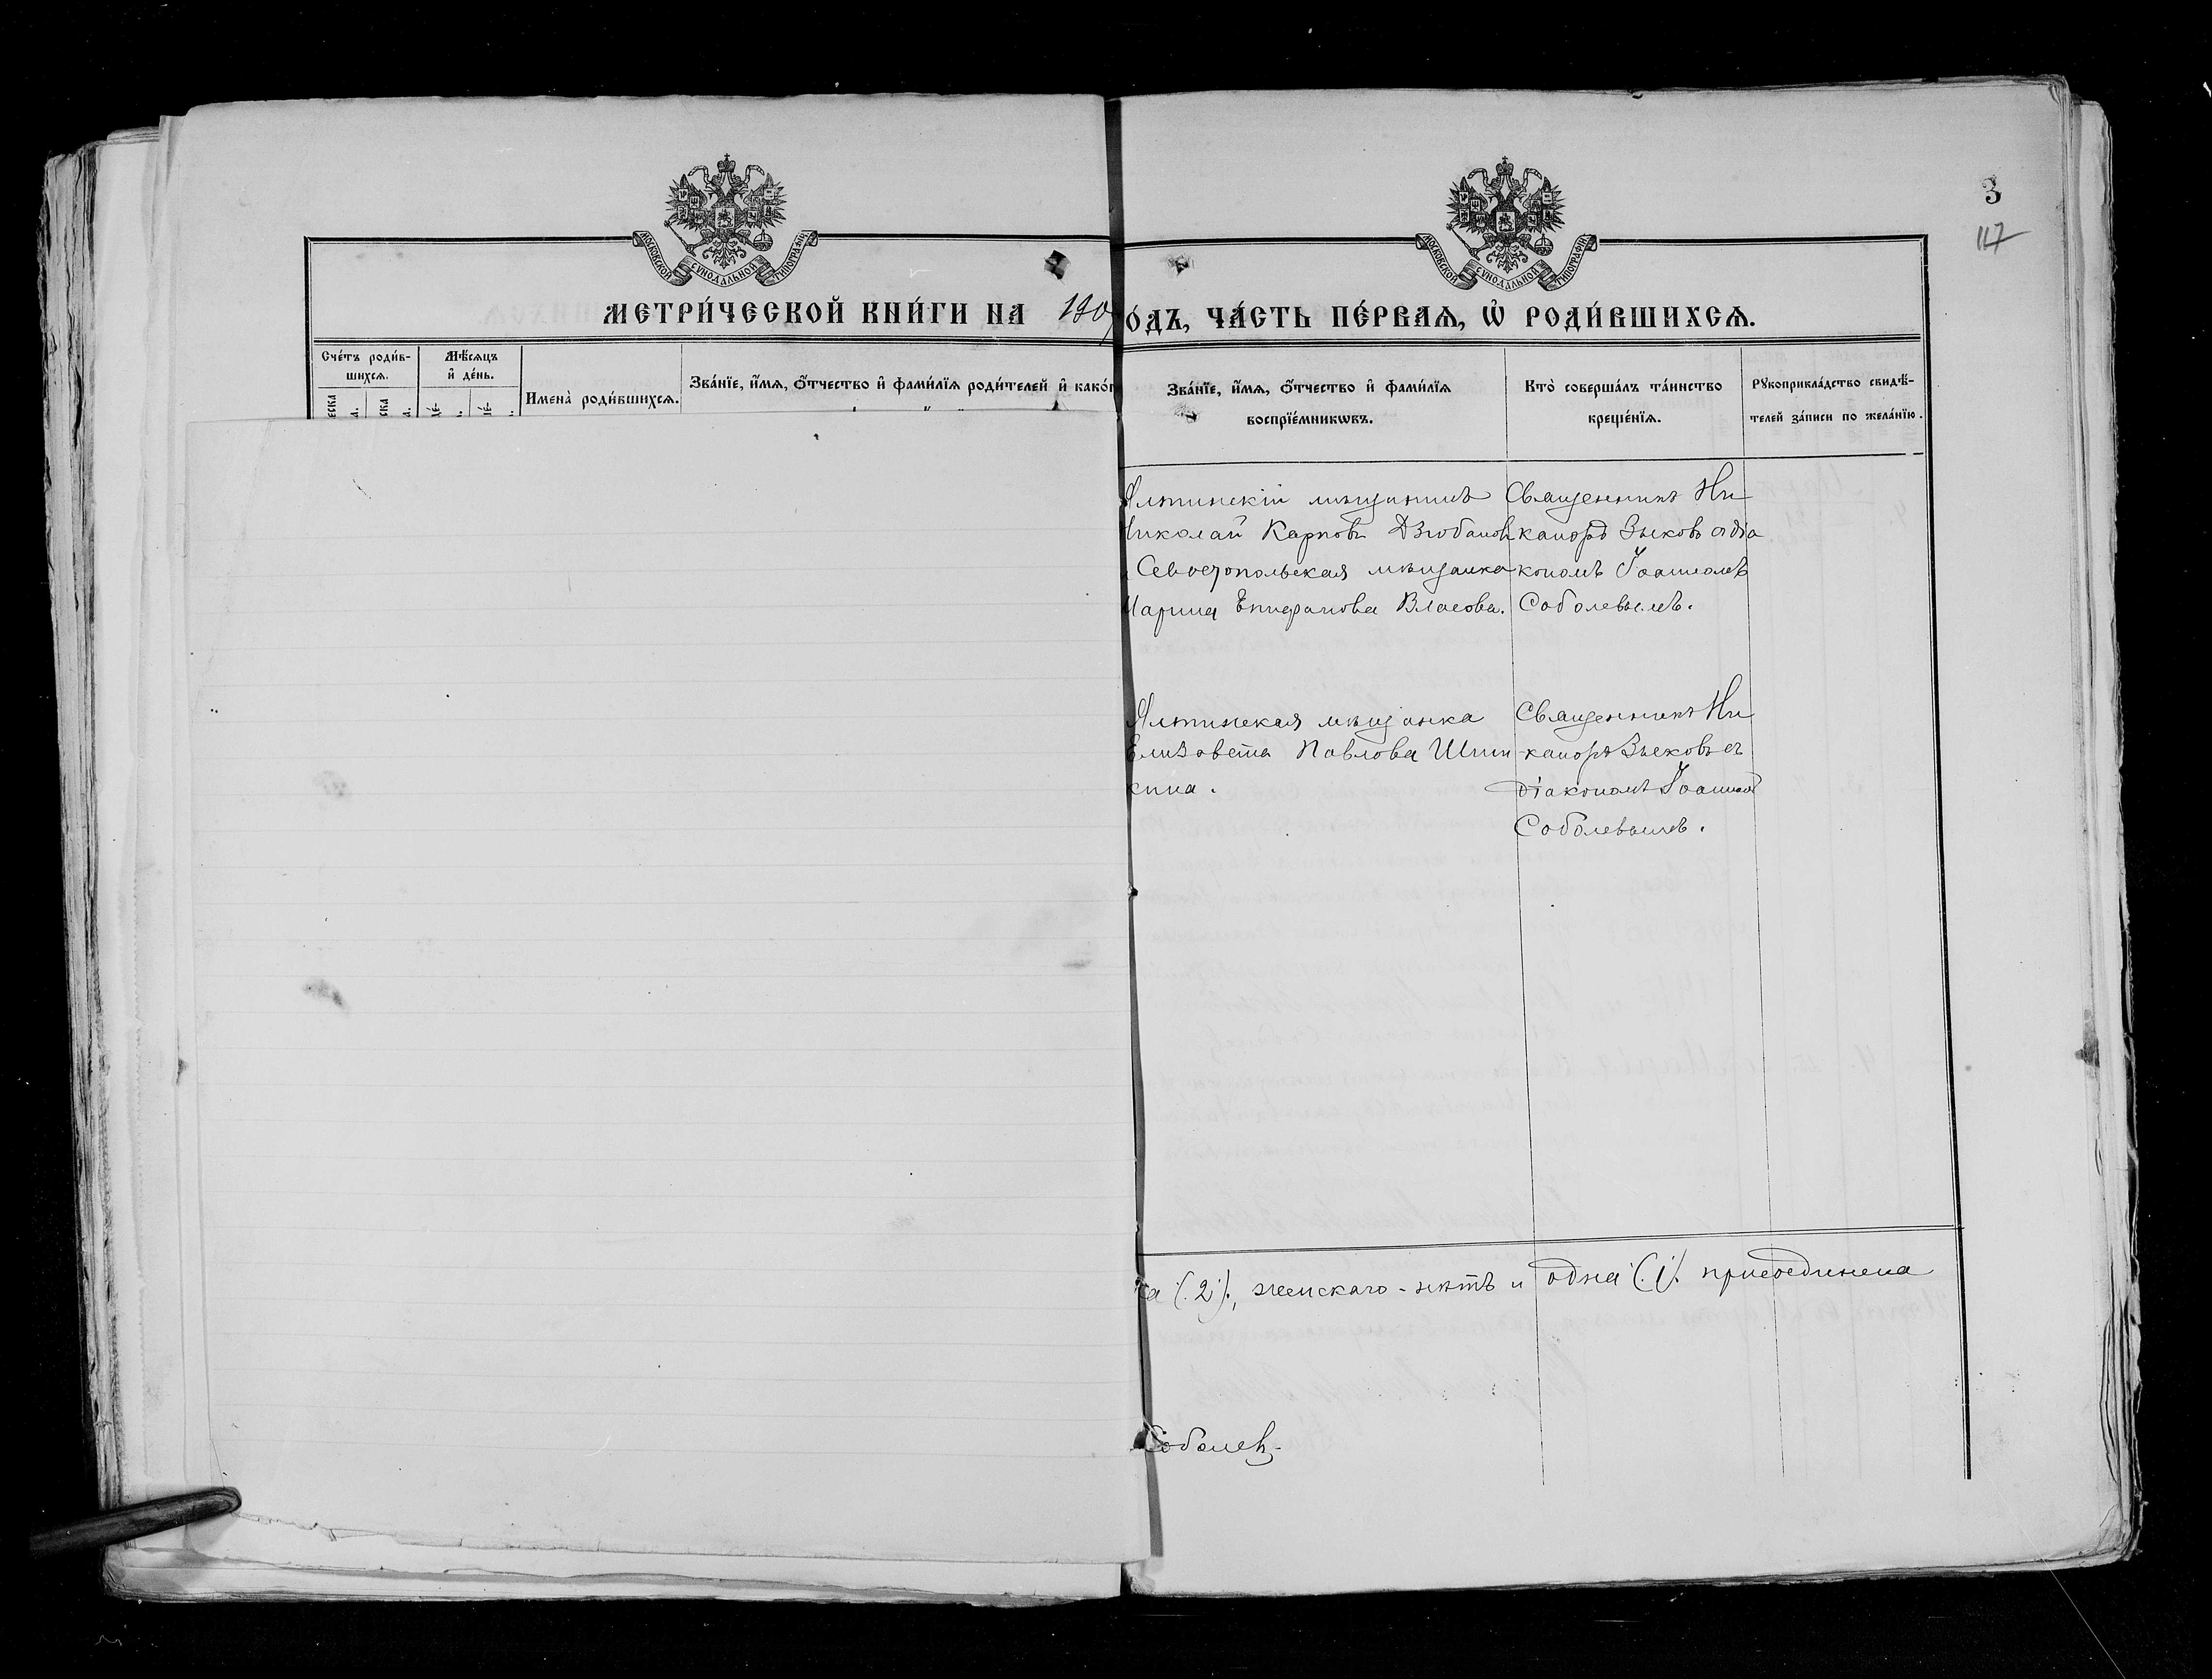 МОСКОВСКОЙ СУНОДАЛЬНОЙ ТИПОГРАФІИ
МОСКОВСКОЙ СУНОДАЛЬНОЙ ТИПОГРАФІИ
3
117
МЕТРИ́ЧЕСКОЙ КНИ́ГИ НА 190
О́ДЪ, ЧА́СТЬ ПЕ́РВАѦ, Ѡ҆ РОДИ́ВШИХСѦ.
Сче́тъ роди́в-
шихсѧ.
Мѣ́сѧцъ
и҆ де́нь.
Имена̀ роди́вшихсѧ.
Зва́нїе, и҆́мѧ, ѻ҆́тчество и҆ фами́лїѧ роди́телей и҆ како́г
Зва́нїе, и҆́мѧ, ѻ҆́тчество и҆ фами́лїѧ
воспрїе́мникѡвъ.
Кто̀ соверша́лъ та́инство
креще́нїѧ.
Рꙋкоприкла́дство свидѣ́-
телей за́писи по жела́нїю.
Ялтинскій мѣщанинъ
Николай Карповъ Дзюбановъ
Севостопольская мѣщанка
Марина Епифанова Власова.
Священникъ Ни
каноръ Зыковъ с діа
кономъ Іоанномъ
Соболевымъ.
Ялтинская мѣщанка
Елизавета Павлова Шин
кина.
Священникъ Ни
каноръ Зыковъ съ
діакономъ Іоанномъ
Соболевымъ.
ка (2), женскаго - нѣтъ и одна (1) присоединена
Соболевъ